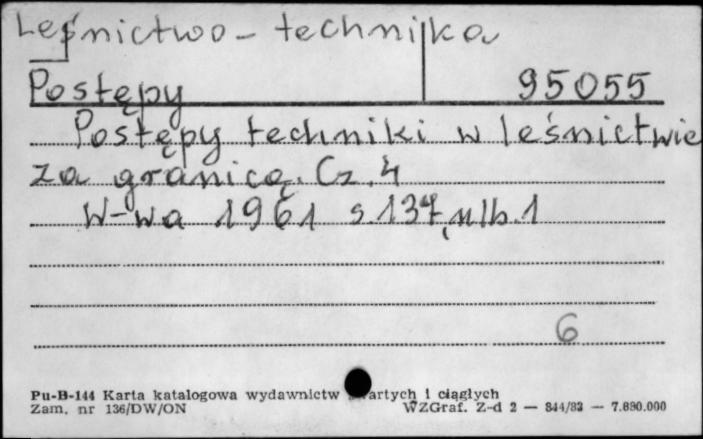 Leśnictwo - technika
Postępy 95055
Postępy techniki w leśnictwie
za granicą. Cz. 4
W-wa 1961 s. 137, nlb. 1
6
Pu-B-144 Karta katalogowa wydawnictw artych i ciągłych
Zam. nr 136/DW/ON WZGraf. Z-d 2 — 844/83 — 7.890.000